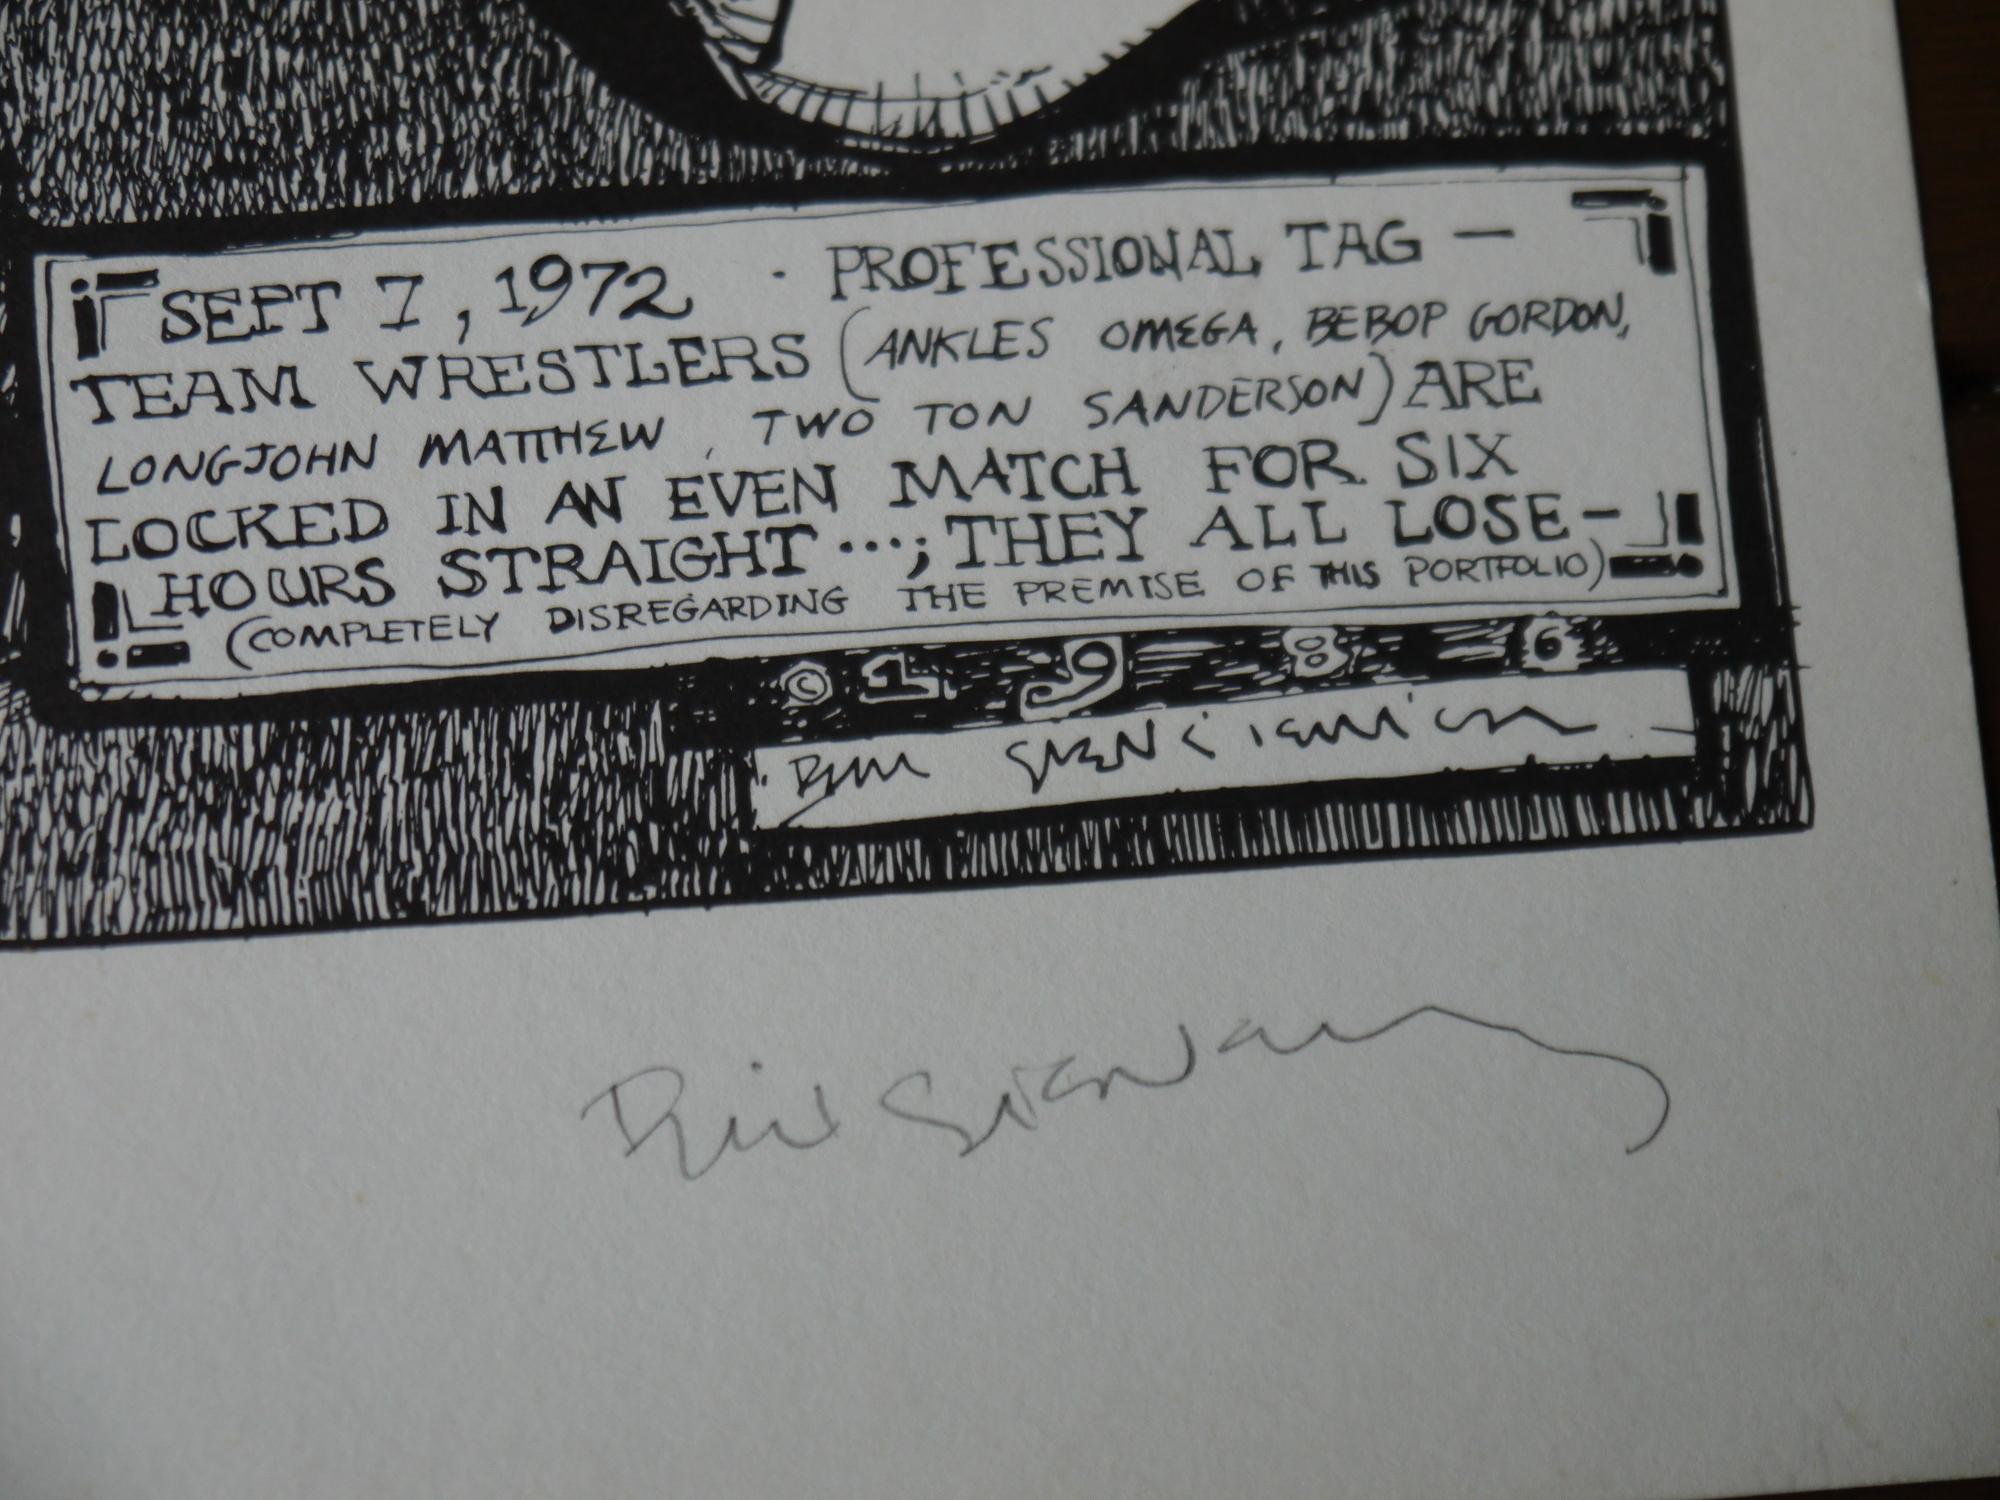 SEPT 7, 1972 · PROFESSIONAL TAG —
TEAM WRESTLERS (ANKLES OMEGA, BEBOP GORDON,
LONGJOHN MATTHEW, TWO TON SANDERSON) ARE
LOCKED IN AN EVEN MATCH FOR SIX
HOURS STRAIGHT...; THEY ALL LOSE—
(COMPLETELY DISREGARDING THE PREMISE OF THIS PORTFOLIO)
© 1986
Bill